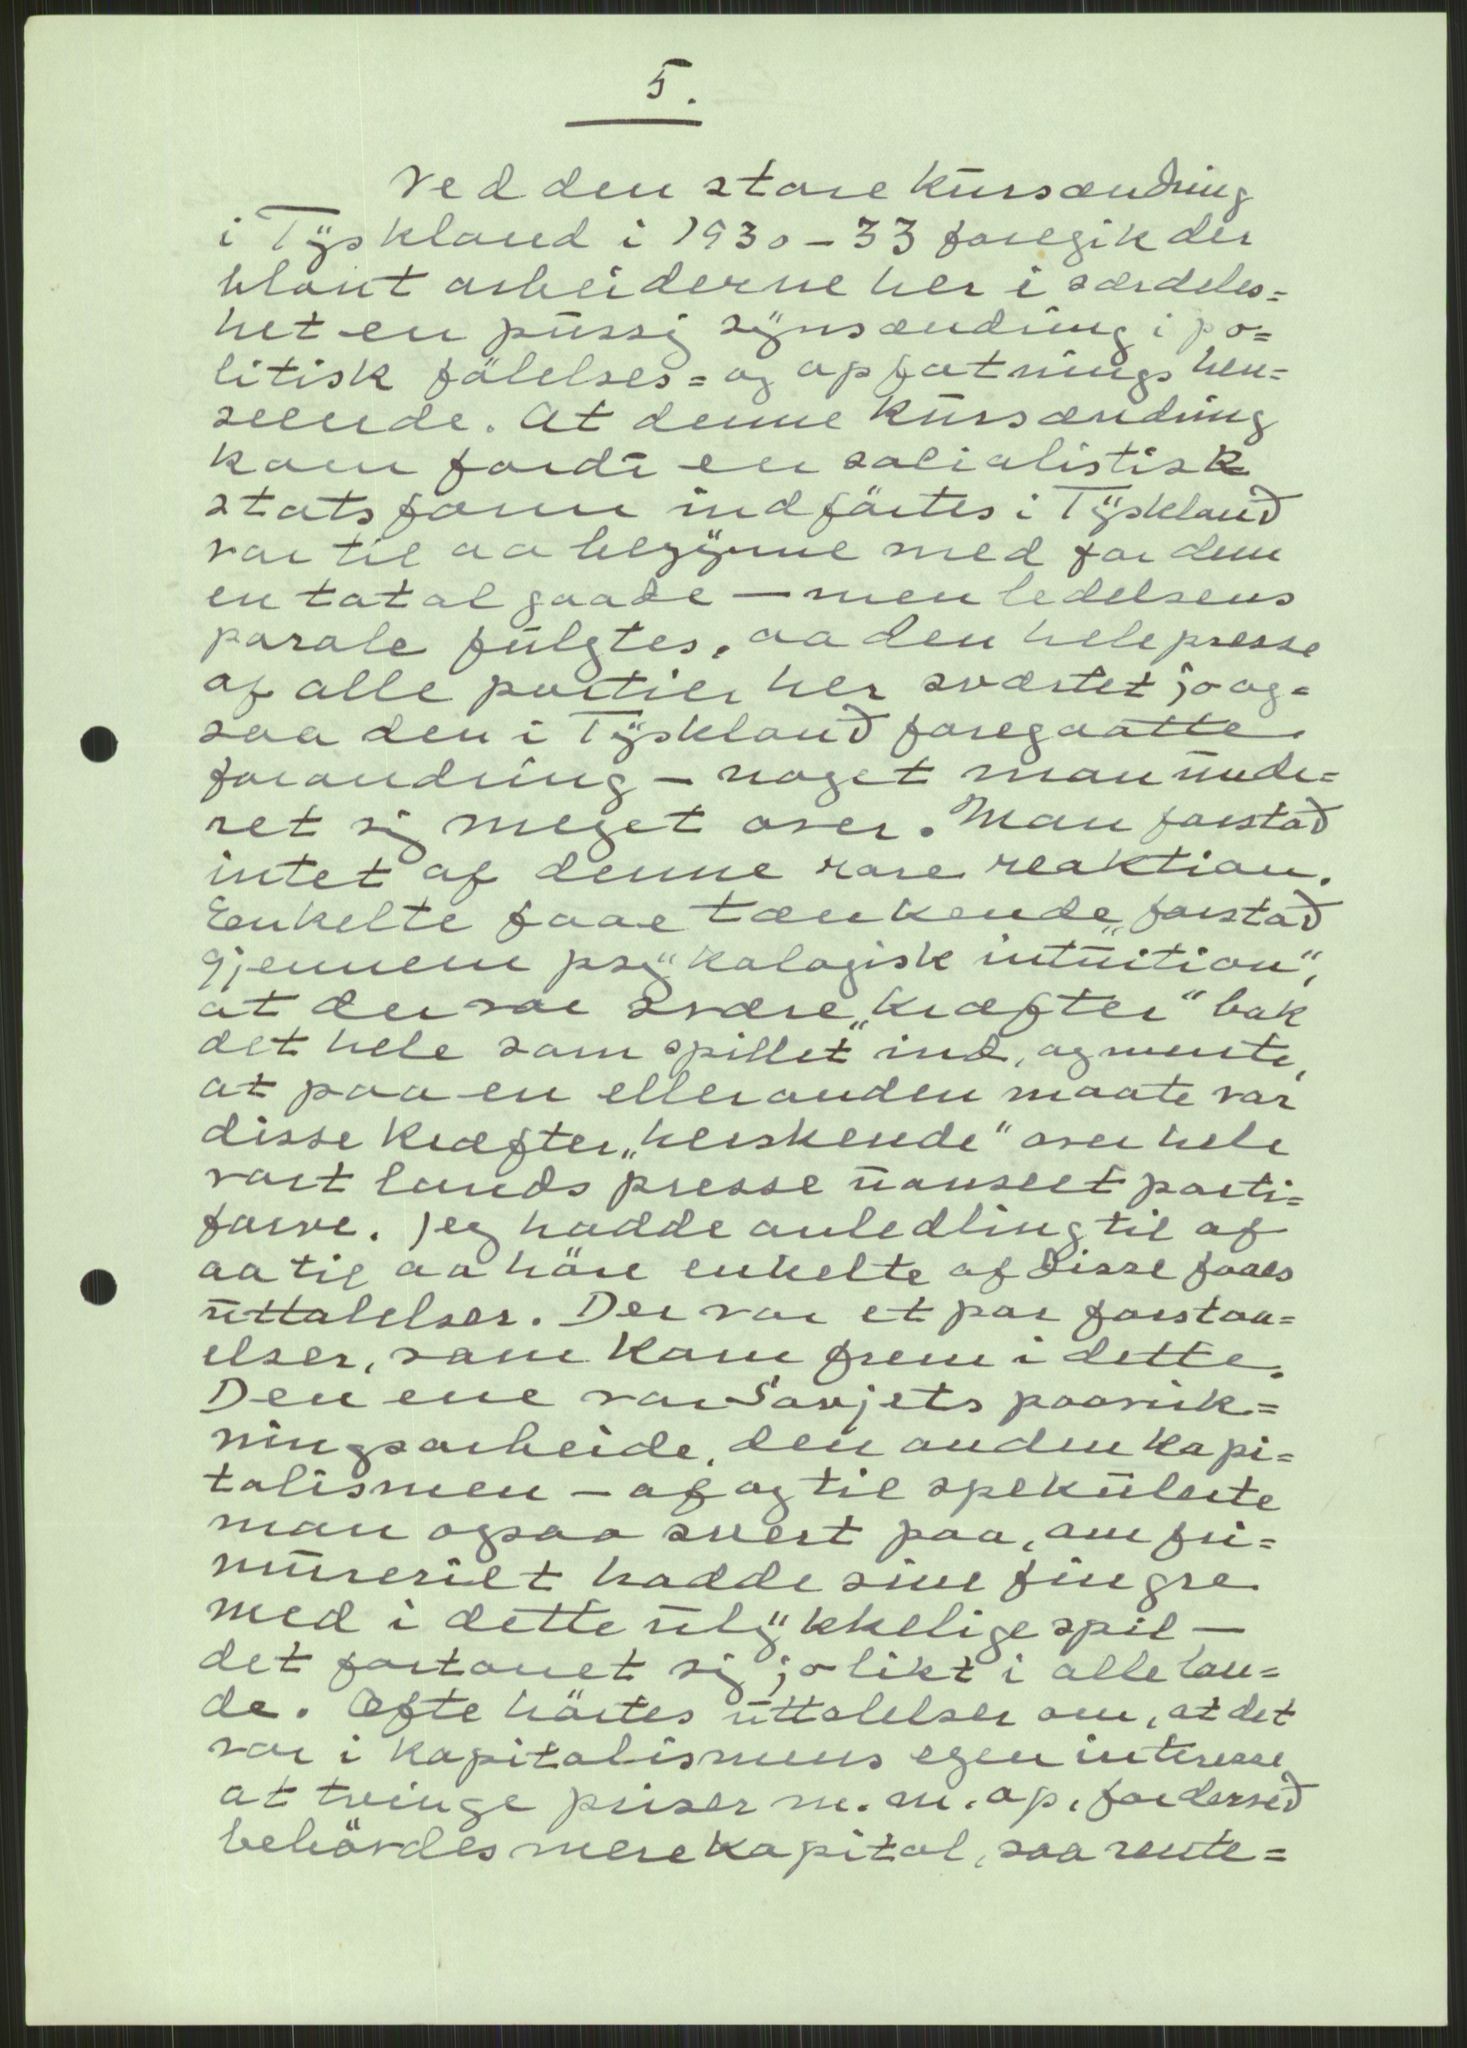 5.
Ved den store kursændring
i Tyskland i 1930-33 foregik der
blant arbeiderne her i særdeles=
het en pussig synsændring i po=
litisk følelses= og opfatnings hen=
seende. At denne kursændring
kom fordi en socialistisk
statsform indførtes i Tyskland
var til aa begynne med for dem
en total gaade — men ledelsens
parole fulgtes, aa den hele presse
af alle partier her sværtet jo og=
saa den i Tyskland foregaatte
forandring - noget man unde=
ret sig meget over. Man forstod
intet af denne rare reaktion.
Enkelte faae tænkende, forstod
gjennem psy"kologisk intuition",
at der var svære „kræfter" bak
det hele som „spillet" ind, og mente,
at paa en eller anden maate var
disse kræfter „herskende" over hele
vort lands presse uanseet parti=
farve. Jeg hadde anledling til af
aa til aa høre enkelte af disse faaes
uttalelser. Der var et par forstaa=
elser, som kom frem i dette.
Den ene var Sovjets paavirk=
ningsarbeide, den anden kapi=
talismen - af og til spekulerte
man ogsaa svert paa, om fri=
mureriet hadde sine fingre
med i dette ulykkelige spil —
det fortonet sig jo likt i alle lan=
de. Ofte hørtes uttalelser om, at det
var i kapitalismens egen interesse
at tvinge priser m. m. op, for derved
behøvdes mere kapital, saa rente=